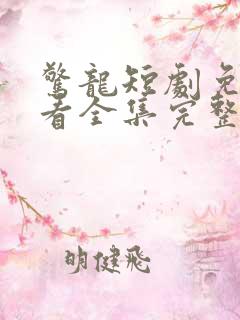 驚龍短劇免
看全集完整
明健飛